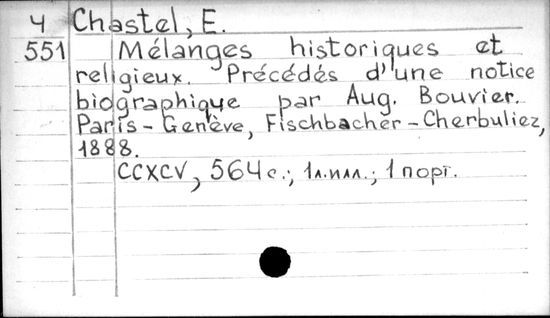 Ч Chastel, E.
551 Mélanges historiques et
religieux. Précédés d'une notice
biographique par Aug. Bouvier.
Paris - Genève, Fischbacher - Cherbuliez,
1888.
CCXCV, 564 с.; 1 л. илл.; 1 порт.